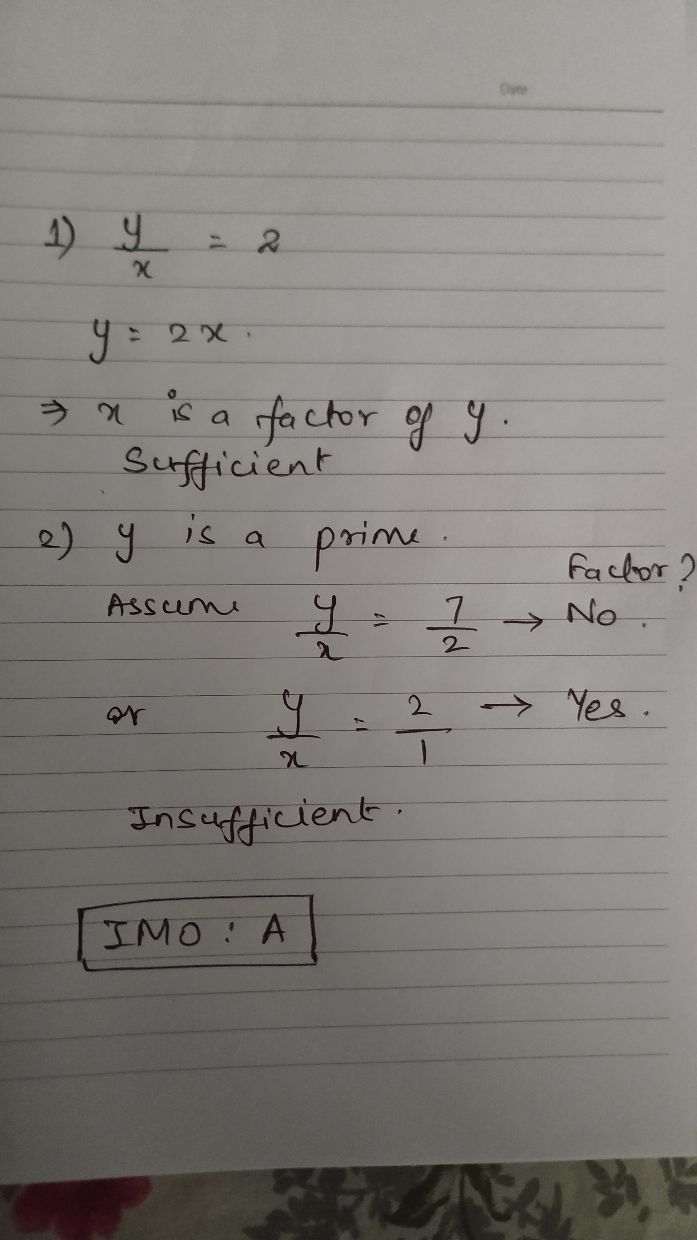 Date
1) y/x = 2
y = 2x.
⇒ x is a factor of y.
Sufficient
2) y is a prime.
Factor?
Assume y/x = 7/2 → No.
or y/x = 2/1 → Yes.
Insufficient.
IMO: A